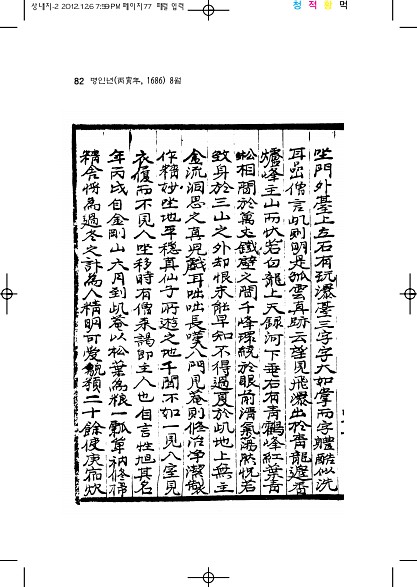 상내지-2 2012.12.6 7:59 PM 페이지77
청 적 황 먹
82 병인년(丙寅年, 1686) 8월
坐門外臺上左石有玩瀑臺三字字大如掌而字軆酷似洗
耳嵒僧言此則明是孤雲真跡云望見飛瀑出於青龍遮香
爐峰主山而伏若白龍上天銀河下垂右有青鶴峰紅葉青
松相間於萬丈鐵壁之間千峰環繞於眼前清氣滿胸恍若
致身於三山之外却恨來能早知不得過夏於此地上無主
金流洞思之真兒戲耳咄咄長嘆入門見菴則修治淨潔製
作精妙坐地平穩真仙子所遊之地千聞不如一見入室見
衣履而不見人坐移時有僧來謁即主人也自言性旭其名
年丙戌自金剛山六月到此菴以松葉為粮一瓢單衲修掃
精舍將為過冬之計為人精明可愛貌類二十餘使庚宿炊